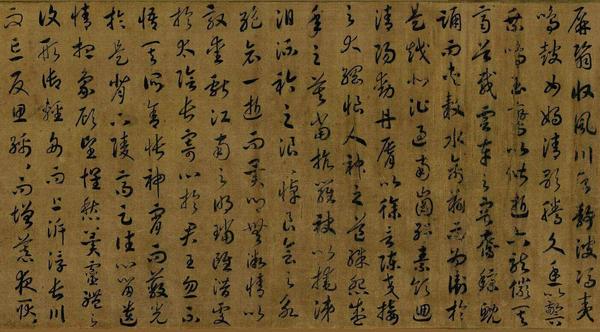 屏翳收風川后靜波馮夷
鳴鼓女媧清歌騰文魚以警
乘鳴玉鸞以偕逝六龍儼其
齊首載雲車之容裔鯨鯢
踊而夾轂水禽翔而為衛於
是越北沚過南崗紆素領迴
清陽動丹脣以徐言陳交接
之大綱恨人神之道殊怨盛
年之莫當抗羅袂以掩涕
泪流衿之浪〻悼良會之永
絕哀一逝而異鄉無微情以
效愛獻江南之明璫雖潛處
於太陰長寄心於君王忽不
悟其所舍悵神宵而蔽光
於是背下陵高足往心留遺
情想象顧望懷愁冀靈體之
復形御輕舟而上泝浮長川
而忘反思綿〻而增慕夜耿